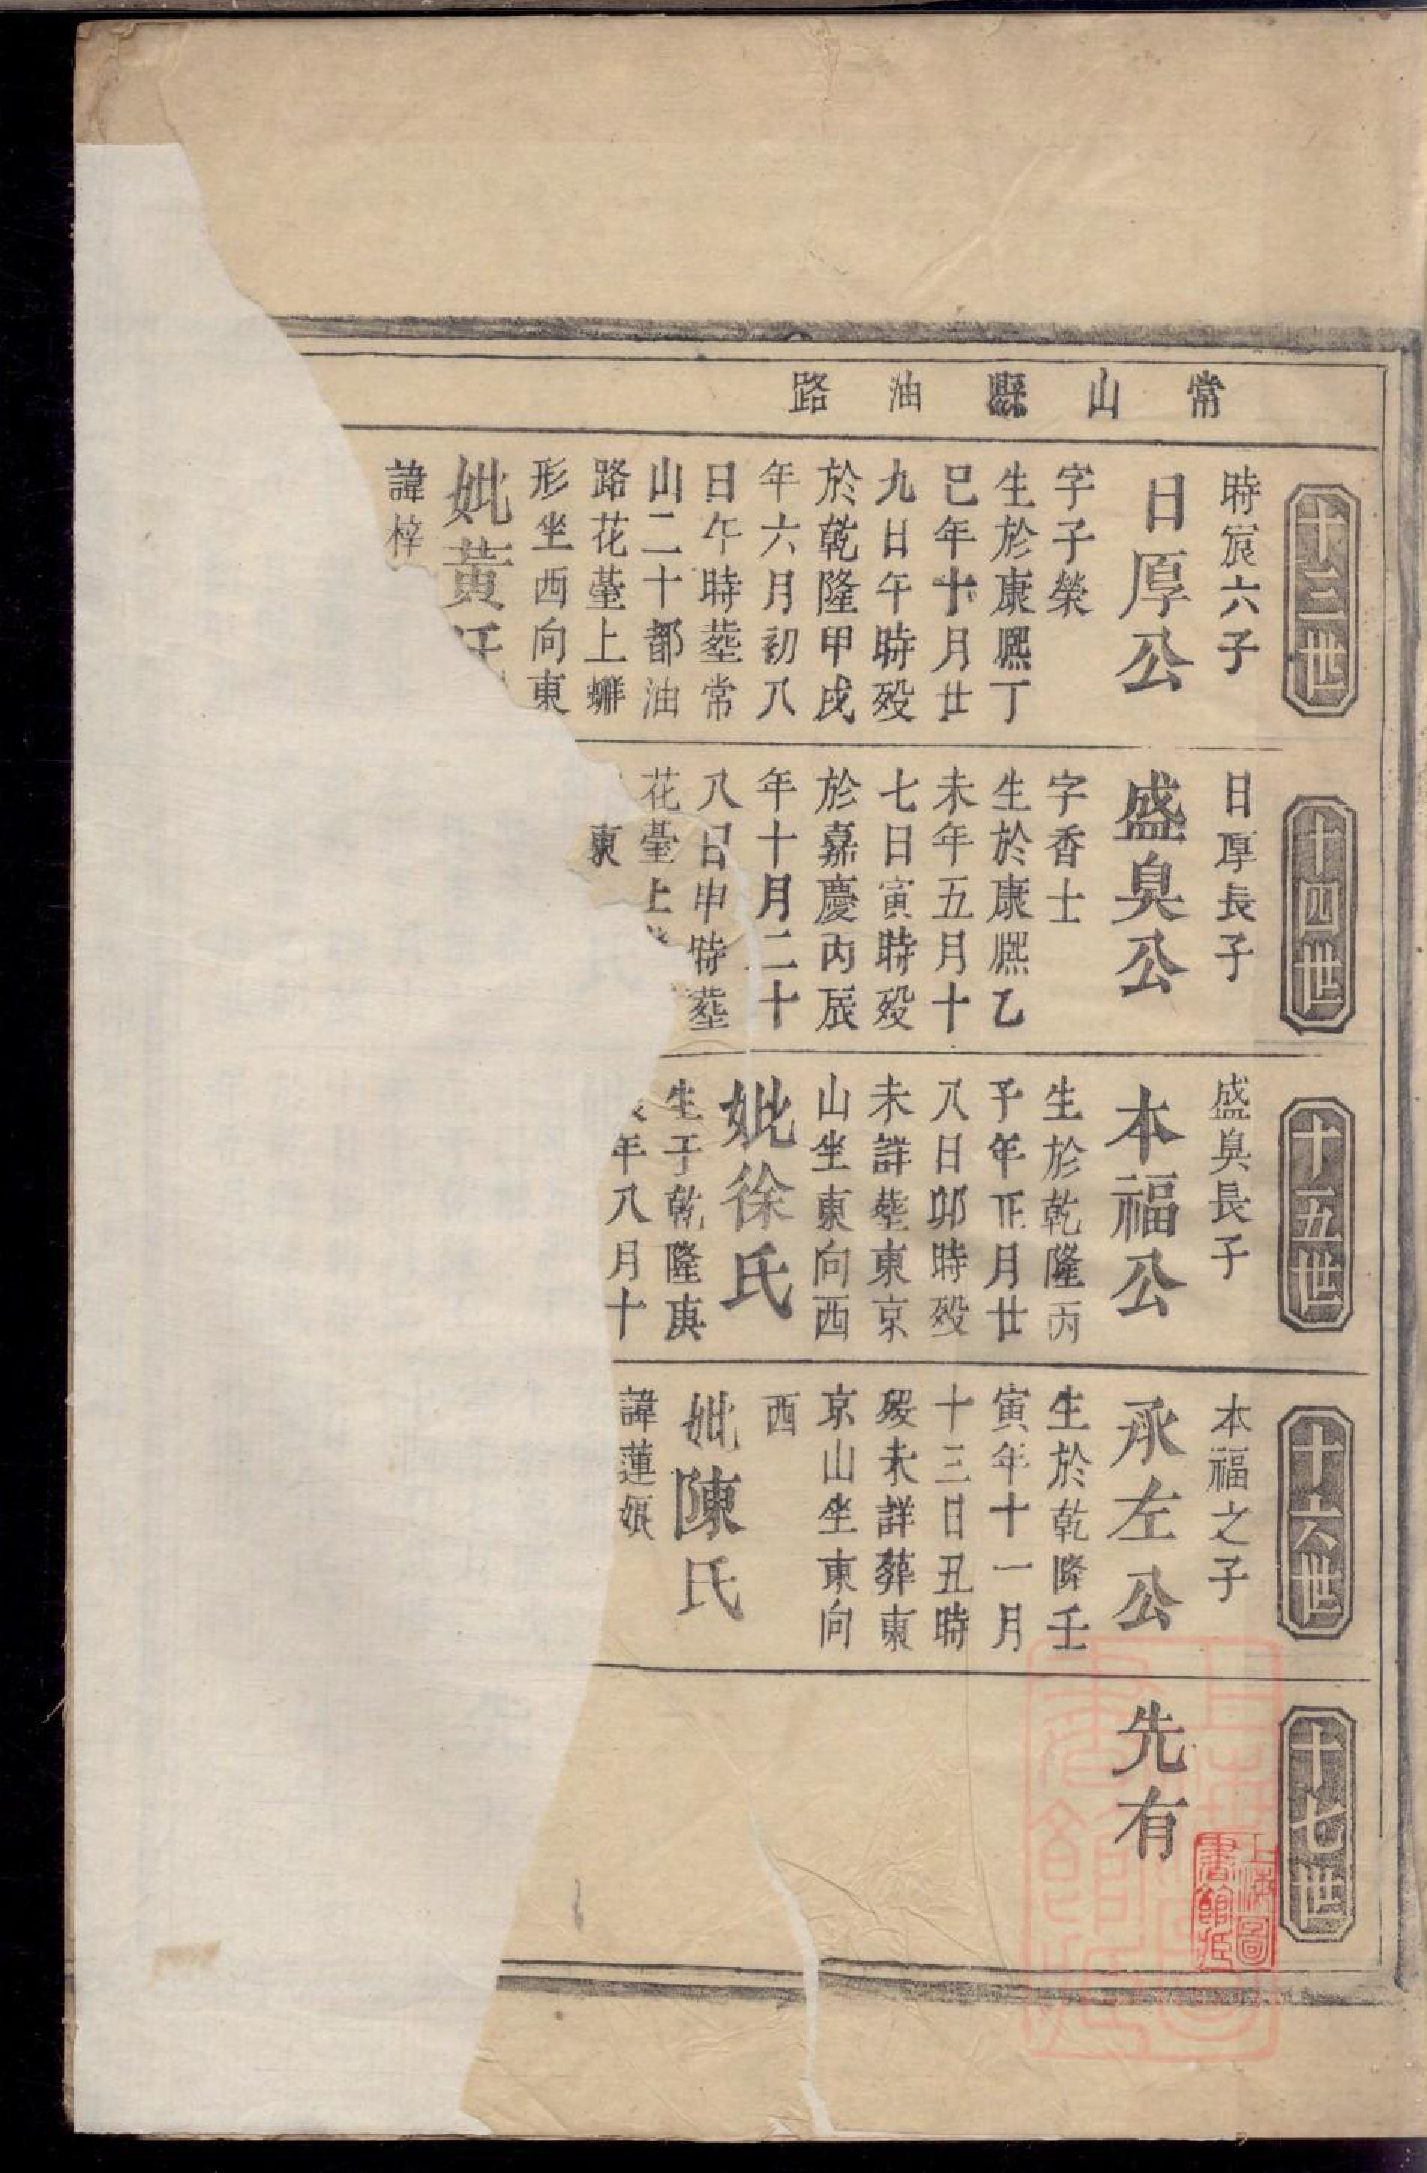 常山縣油路
十三世
時宸六子
日厚公
字子榮
生於康熙丁
巳年十月廿
九日午時歿
於乾隆甲戌
年六月初八
日午時塟常
山二十都油
路花臺上螄
形坐西向東
妣黃氏
諱梓
十四世
日厚長子
盛臭公
字香士
生於康熙乙
未年五月十
七日寅時歿
於嘉慶丙辰
年十月二十
八日申時塟
花臺上
東
十五世
盛臭長子
本福公
生於乾隆丙
子年正月廿
八日卯時歿
未詳塟東京
山坐東向西
妣徐氏
生于乾隆庚
年八月十
十六世
本福之子
承左公
生於乾隆壬
寅年十一月
十三日丑時
歿未詳葬東
京山坐東向
西
妣陳氏
諱蓮娘
十七世
先有
上海圖
書館藏